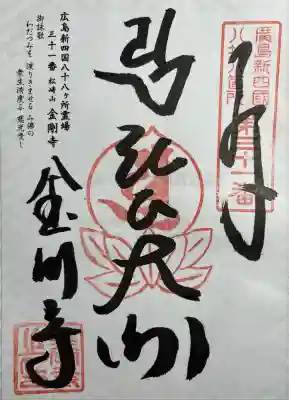 奉拝
弘法大師
金剛寺
廣島新四國
八十八箇所第三十一番
広島新四国八十八ヶ所霊場
三十一番 松崎山 金剛寺
御詠歌
わだつみを 渡りきませる み佛の
衆生済度ぶ 慈光尊し